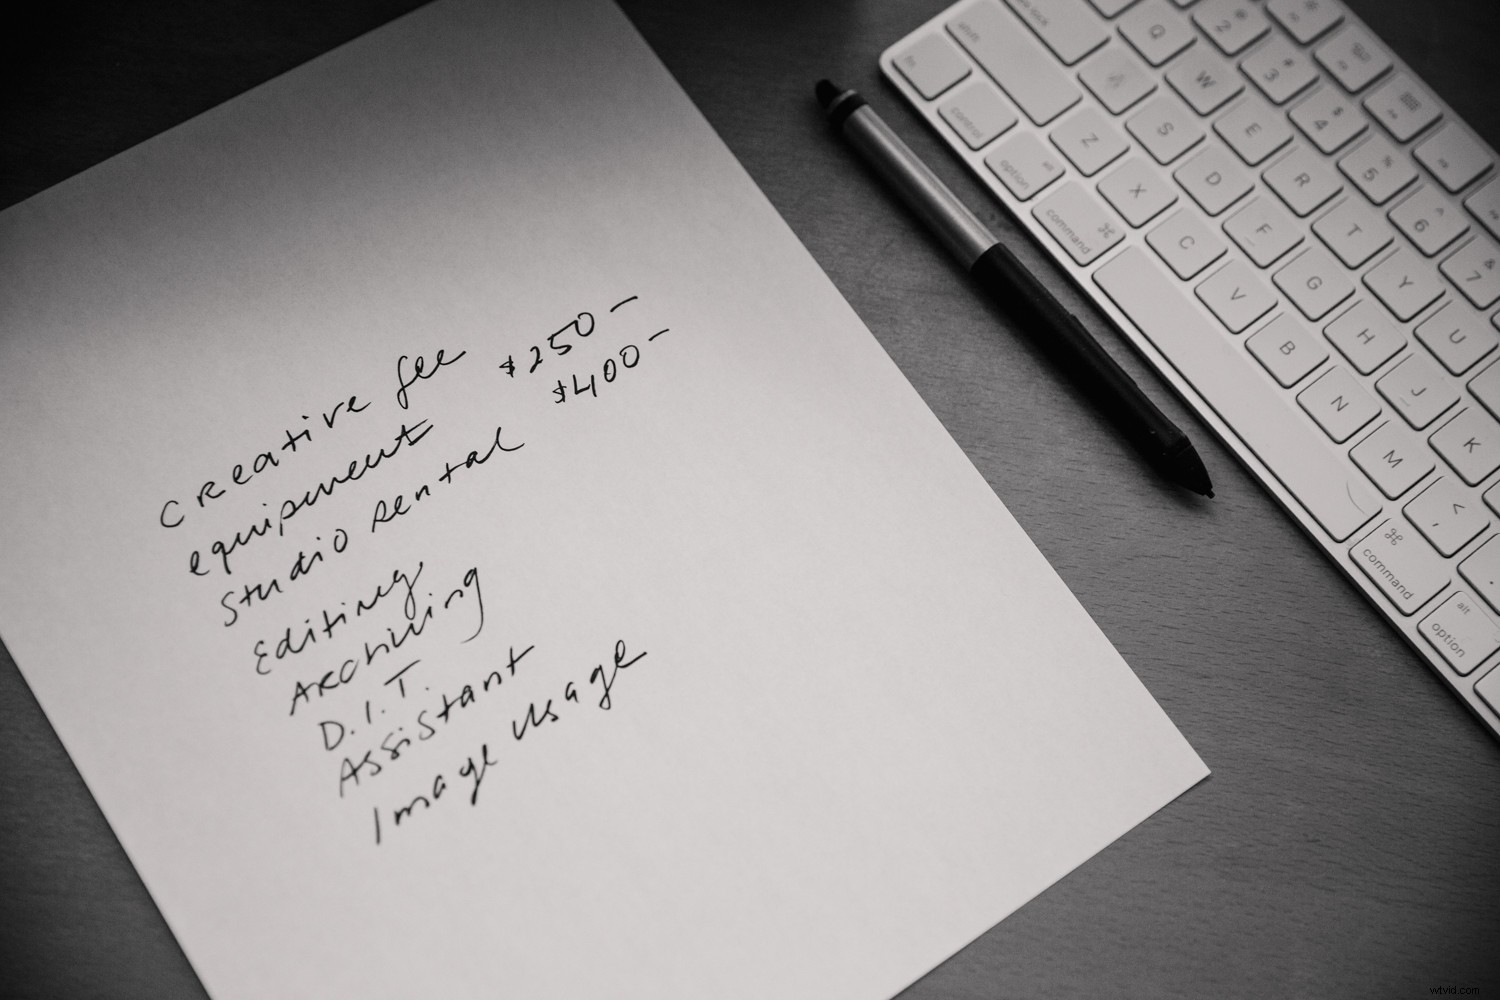 Creative fee
equipment $250-
Studio rental $400-
Editing
Archiving
D.I.T.
Assistant
Image Usage
@ 2 # 3 $ 4 % 5 ^ 6 & 7
Q W E R T Y U
lock A S D F G H J K
shift Z X C V B N M < ,
fn control alt option ⌘ command ⌘ command alt option
wtvid.com